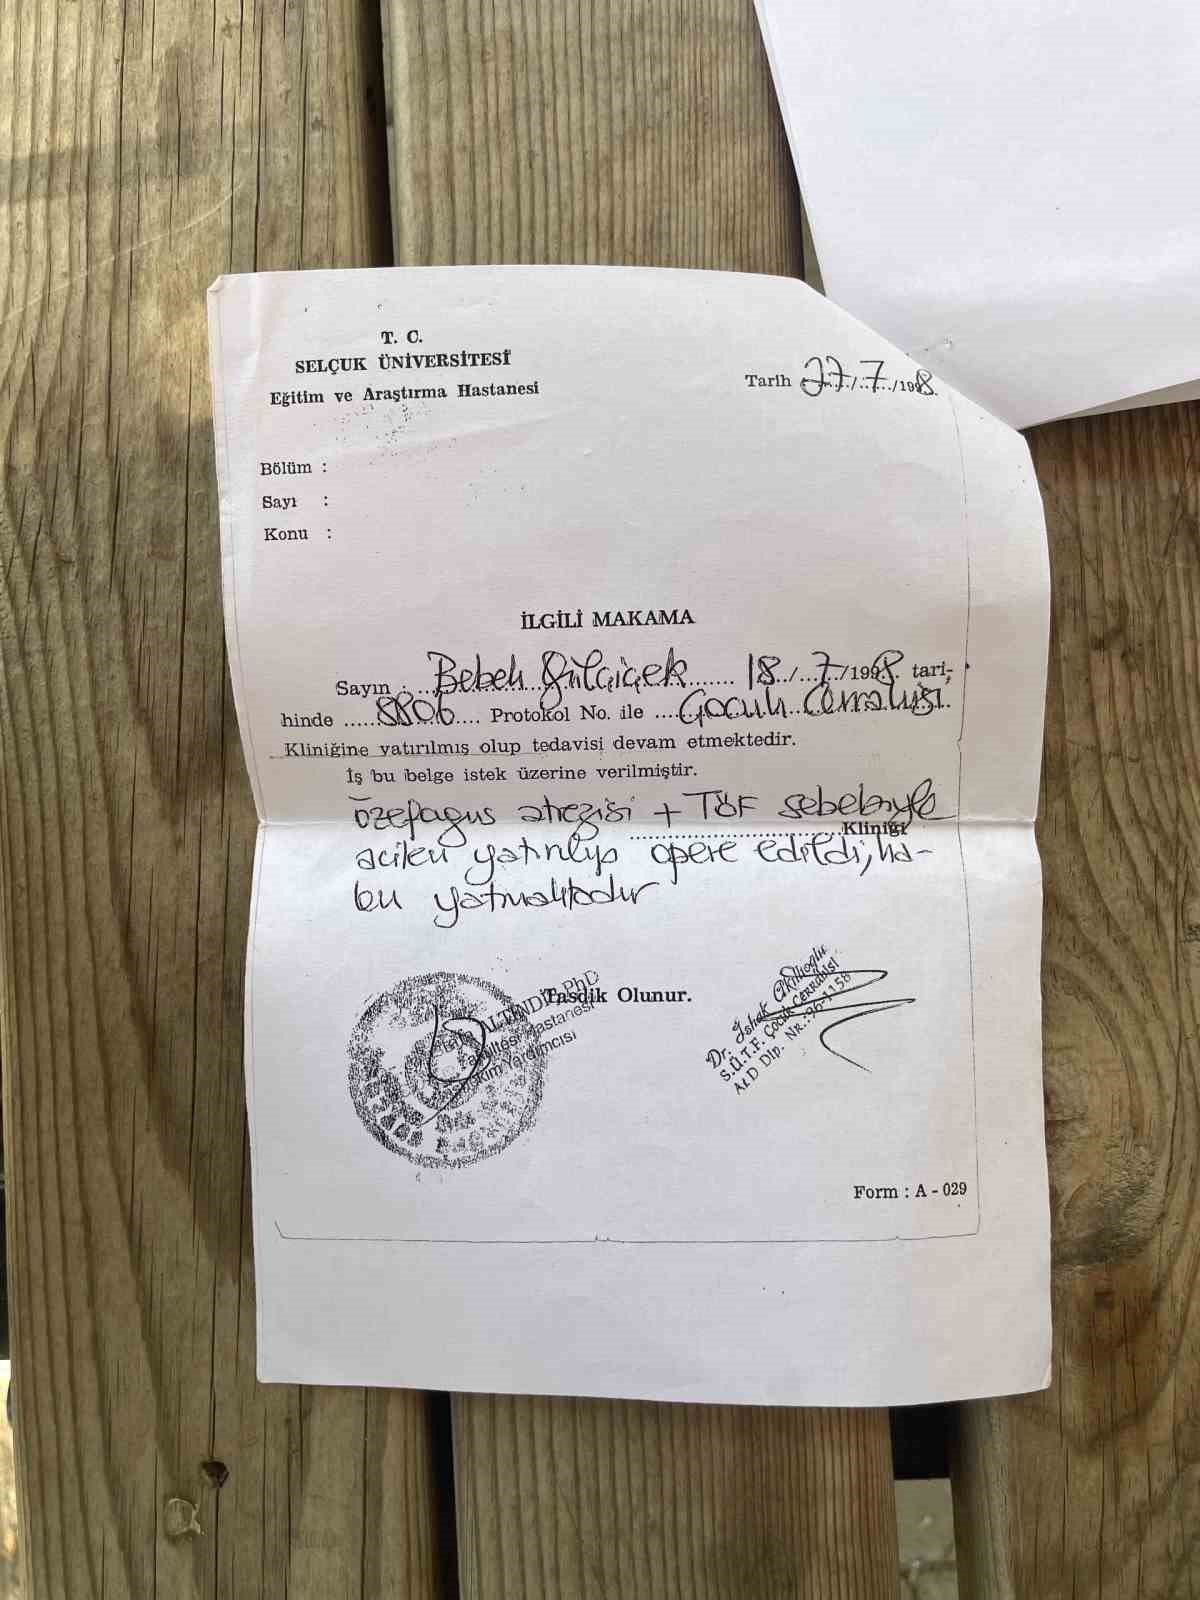 T. C.
SELÇUK ÜNİVERSİTESİ
Eğitim ve Araştırma Hastanesi
Tarih 27/7/1998.
Bölüm :
Sayı :
Konu :
İLGİLİ MAKAMA
Sayın : Bebek Gülçiçek 18/7/1998. tari-
hinde 8806 Protokol No. ile Çocuk Cerrahisi
Kliniğine yatırılmış olup tedavisi devam etmektedir.
İş bu belge istek üzerine verilmiştir.
özefagus atrezisi + TÖF sebebiyle
Kliniği
acilen yatırılıp opere edildi, ha-
len yatmaktadır
ALTINDİŞ PhD
Fakültesi Hastanesi
Başhekim Yardımcısı
Tasdik Olunur.
Dr. İshak Akıllıoğlu
S.Ü.T.F. Çocuk CERRAHİSİ
ALD Dip. Nr.:96-1158
Form : A - 029